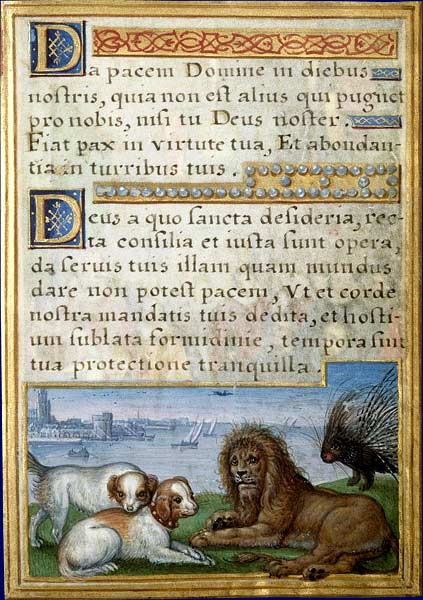 Da pacem Domine in diebus
nostris, quia non est alius qui pugnet
pro nobis, nisi tu Deus noster.
Fiat pax in virtute tua, Et abondan-
tia in turribus tuis.
Deus a quo sancta desideria, rec-
ta consilia et iusta sunt opera,
da seruis tuis illam quam mundus
dare non potest pacem, Vt et corde
nostra mandatis tuis dedita, et hosti-
um sublata formidinie, tempora sint
tua protectione tranquilla.